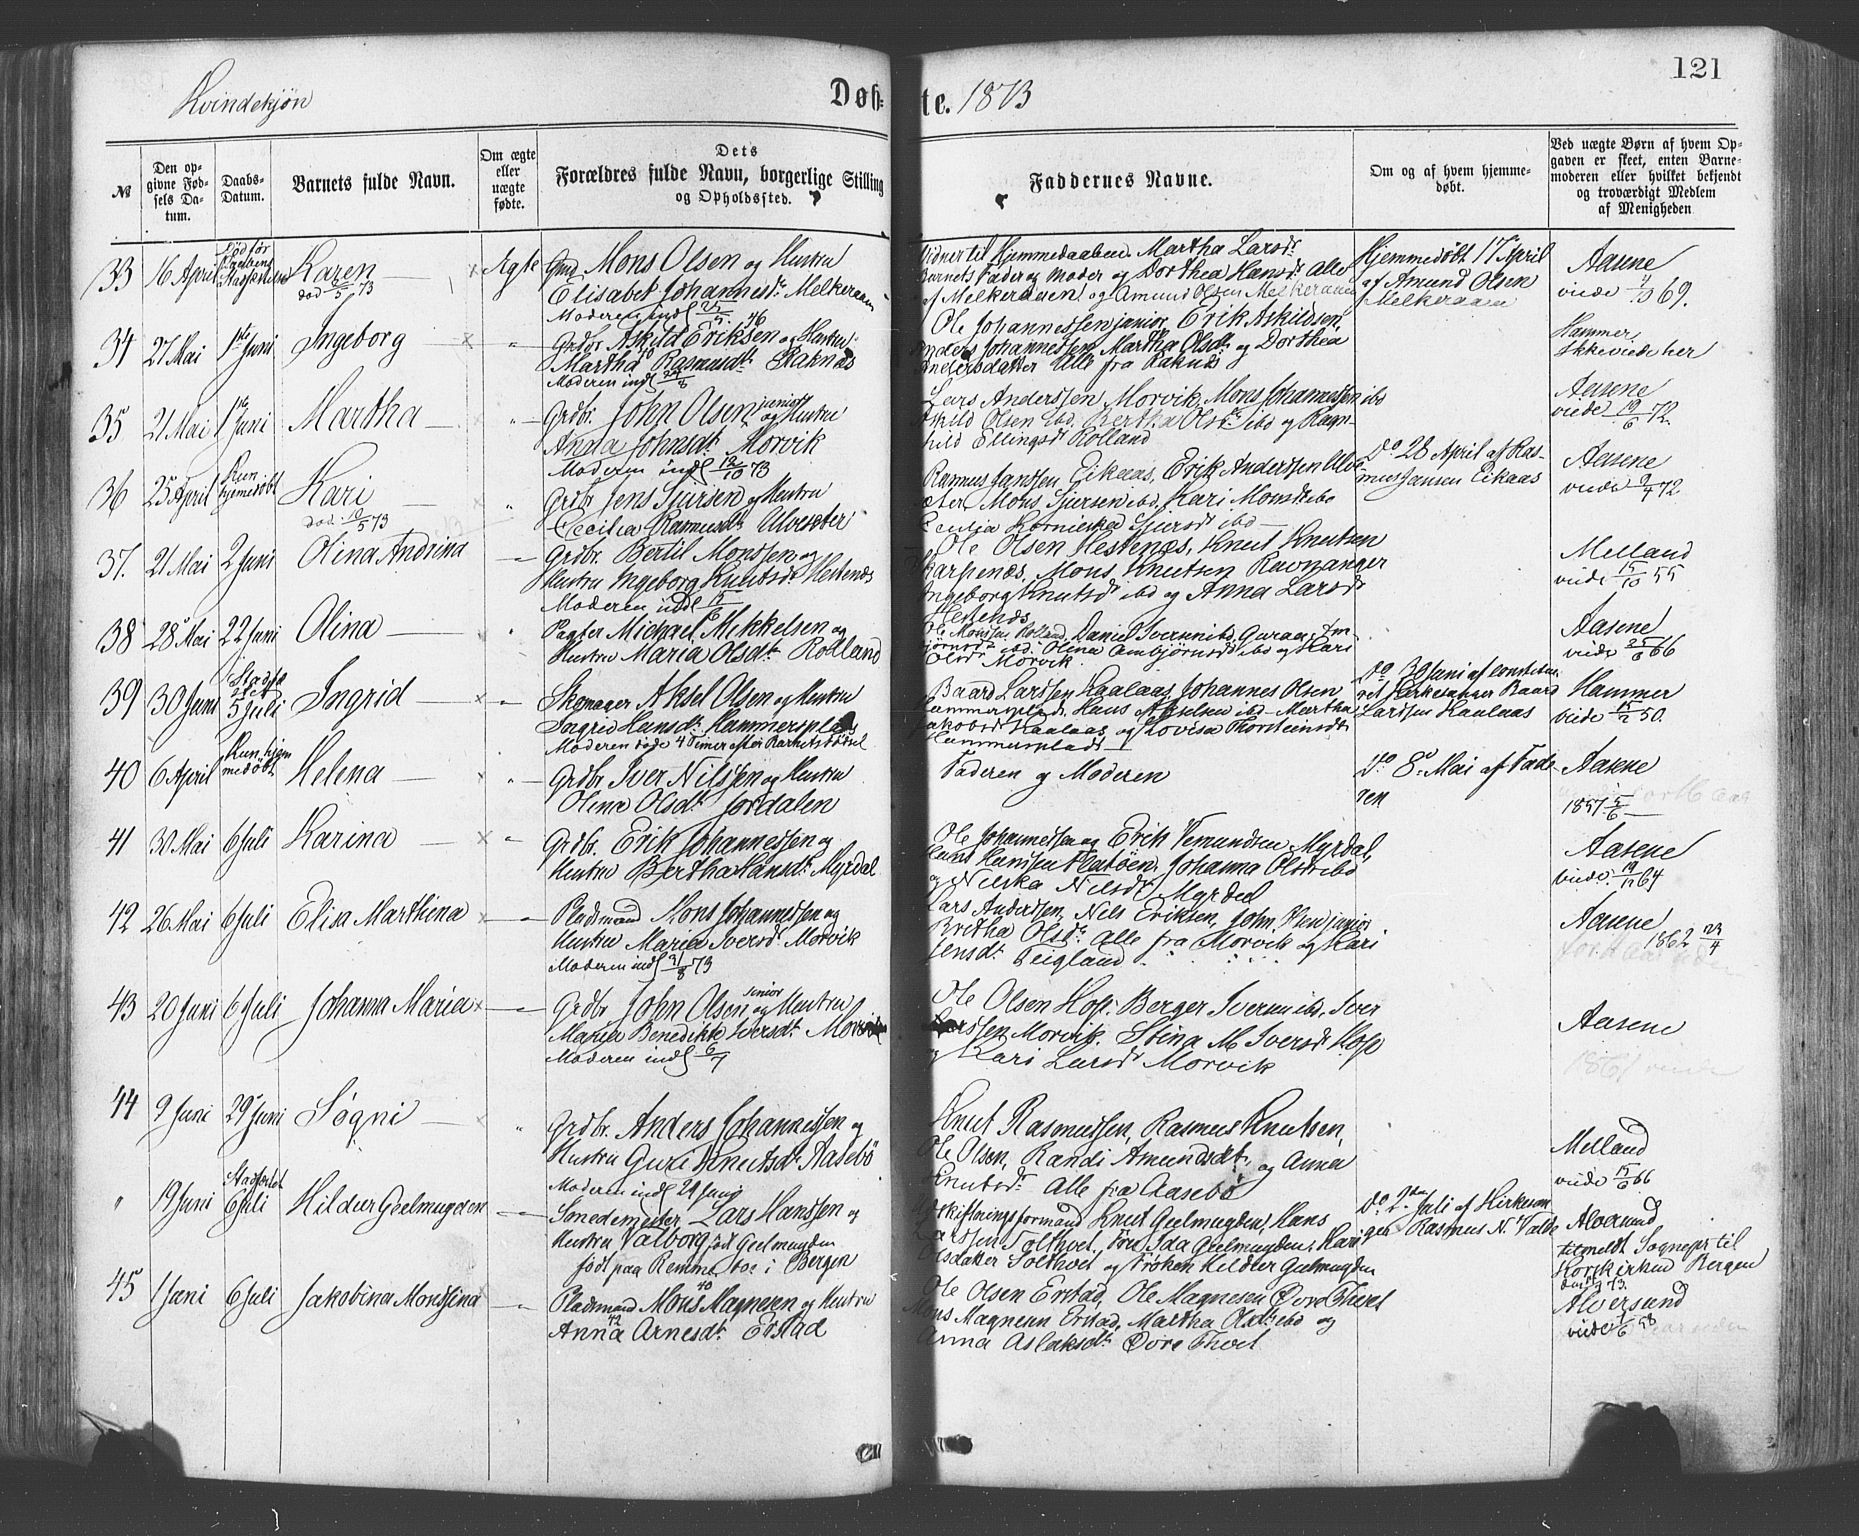 121
Kvindekjøn
Døb-te. 1873
№
Den opgivne Fødsels Datum.
Daabs-Datum.
Barnets fulde Navn.
Om ægte eller uægte fødte.
Dets Forældres fulde Navn, borgerlige Stilling og Opholdssted.
Faddernes Navne.
Om og af hvem hjemmedøbt.
Ved uægte Børn af hvem Opgaven er skeet, enten Barnemoderen eller hvilket bekjendt og troværdigt Medlem af Menigheden
33 16 April Karen Ægte Mons Olsen og Hustru
død 73
Elisabet Johannesdr Melkeraaen
Vidner til Hjemmedaaben Martha Larsdr
Barnets Fader og Moder og Dorthea Hansdr Alle
af Melkeraaen og Amund Olsen Melkeraaen
Hjemmedøbt 17 April
af Amund Olsen
Melkeraaen
Aasene
viede 69.
34 27 Mai 1ste Juni Ingeborg " Grdbr Askild Eriksen og Hustru
Martha Rasmusdr Raknæs
Moderen indl 24/8
Ole Johannessen junior, Erik Askildsen,
Anders Johannessen Martha Olsdr og Dorthea
Andersdatter Alle fra Raknes
Hammer,
Ikke viede her
35 21 Mai 1ste Juni Martha " Grdbr. John Olsen junior og Hustru
Anna Johnsdr Morvik
Moderen indl 12/10 73
Lars Anderssen Morvik, Mons Johannessen ibd
Askild Olsen ibd. Bertha Olsdr ibd og Ragn-
hild Ellingsdr Rolland
Aasene
viede 19/6 72.
36 25 April Kun hjemedøbt Kari " Grdbr Jens Sjursen og Hustru
død 10/5 73
Cecilia Rasmusdr Alvesæter
Rasmus Jansen Eikaas, Erik Anderssen Alve-
sæter Mons Sjursen ibd. Kari Monsdr ibd
Do 28 April af Ras-
mus Jansen Eikaas
Aasene
viede 9/4 72.
37. 21 Mai 2 Juni Olina Andrina Grdbr. Bertil Monssen og
Hustru Ingeborg Knutsdr Hestenæs
Moderen indl 15/6
Ole Olsen Hestenæs, Knut Knutsen
Mons Knutsen Ravnanger
Ingeborg Knutsdr ibd og Anna Larsdr
Hestenæs
Melland
viede 15/10 55
38 28 Mai 22 Juni Olina " Pagter Michael Mikkelsen og
Hustru Maria Olsdr Rolland
Ole Monssen Rolland, Daniel Iversen ibd,
Olina Ambjørnsdr ibd og Kari
Olsdr Morvik.
Aasene
viede 25/6 66
39 30 Juni 5 Juli Ingrid " Skomager Aksel Olsen og Hustru
Ingrid Hansdr Hammersplads
Moderen døde 4 Timer efter Barnets Fødsel
Baard Larssen Kaalaas, Johannes Olsen
Hammersplads, Hans Akselsen ibd Martha
Jakobsdr Kaalaas og Lovisa Thorsteinsdr
Hammersplads
Do 30 Juni af
Kirkesanger Baard
Larssen Kaalaas
Hammer
viede 15/2 50.
40 6 April Kun hjemmedøbt Helena " Grdbr. Iver Nilssen og Hustru
Olina Olsdr Jordalen
Faderen og Moderen
Do 8 Mai af Fade-
ren
Aasene
1857 5/6
41 30 Mai 6 Juli Karina " Grdbr. Erik Johannessen og
Hustru Bertha Hansdr Myrdal
Ole Johannessen og Erik Vemundsen Myrdal,
Hans Hanssen Flatøen, Johanna Olsdr ibd
og Nilska Nilsdr Myrdal
Aasene
viede 64
42 26 Mai 6 Juli Elisa Marthina Pladsmand Mons Johannessen og
Hustru Maria Iversdr Morvik
Moderen indl 31/8 73
Lars Anderssen, Nils Eriksen, John Olsen junior
Britha Olsdr Alle fra Morvik og Kari
Jensdr Teigland
Aasene
1862 23/4
43 20 Juni 6 Juli Johanna Maria Grdbr John Olsen senior og Hustru
Maria Benedikte Iversdr Morvik
Moderen indl 6/7
Ole Olsen Hope Berger Iversen ibd. Iver
Larssen Morvik. Stina M. Iversdr Hope
og Kari Larsdr Morvik
Aasene
44 9 Juni 29 Juni Søgni " Grdbr. Anders Johannessen og
Hustru Guri Knutsdr Aasebø
Moderen indl 24 Juni
Knut Rasmussen, Rasmus Knutsen,
Ole Olsen, Randi Amundsdr, og Anna
Knutsdr Alle fra Aasebø
Melland
viede 15/6 66
" 19 Juni Stadfæstet 6 Juli Hildur Geelmuyden Lars Hanssen og
Hustru Valborg født Geelmuyden
født paa i Bergen
Knut Geelmuyden, Hans
Larssen Tofthvet, Fru Ida Geelmuyden, Kari
Olsdatter Tofthvet og Frøken Hildur Geelmuyden
Do 2den Juli af Kirkesan-
ger Rasmus N. Valde
Alversund
tilmeldt Sognepr til
Korskirken Bergen
45 1 Juni 6 Juli Jakobina Monssina Pladsmand Mons 40 Magnesen og Hustru
Anna 42 Arnesdr Erstad
Ole Olsen Erstad, Ole Magnesen Øvre Thvet
Mons Magnesen Erstad, Martha Olsdr ibd og
Anna Aslaksdr Øvre Thvet
Alversund
viede 58